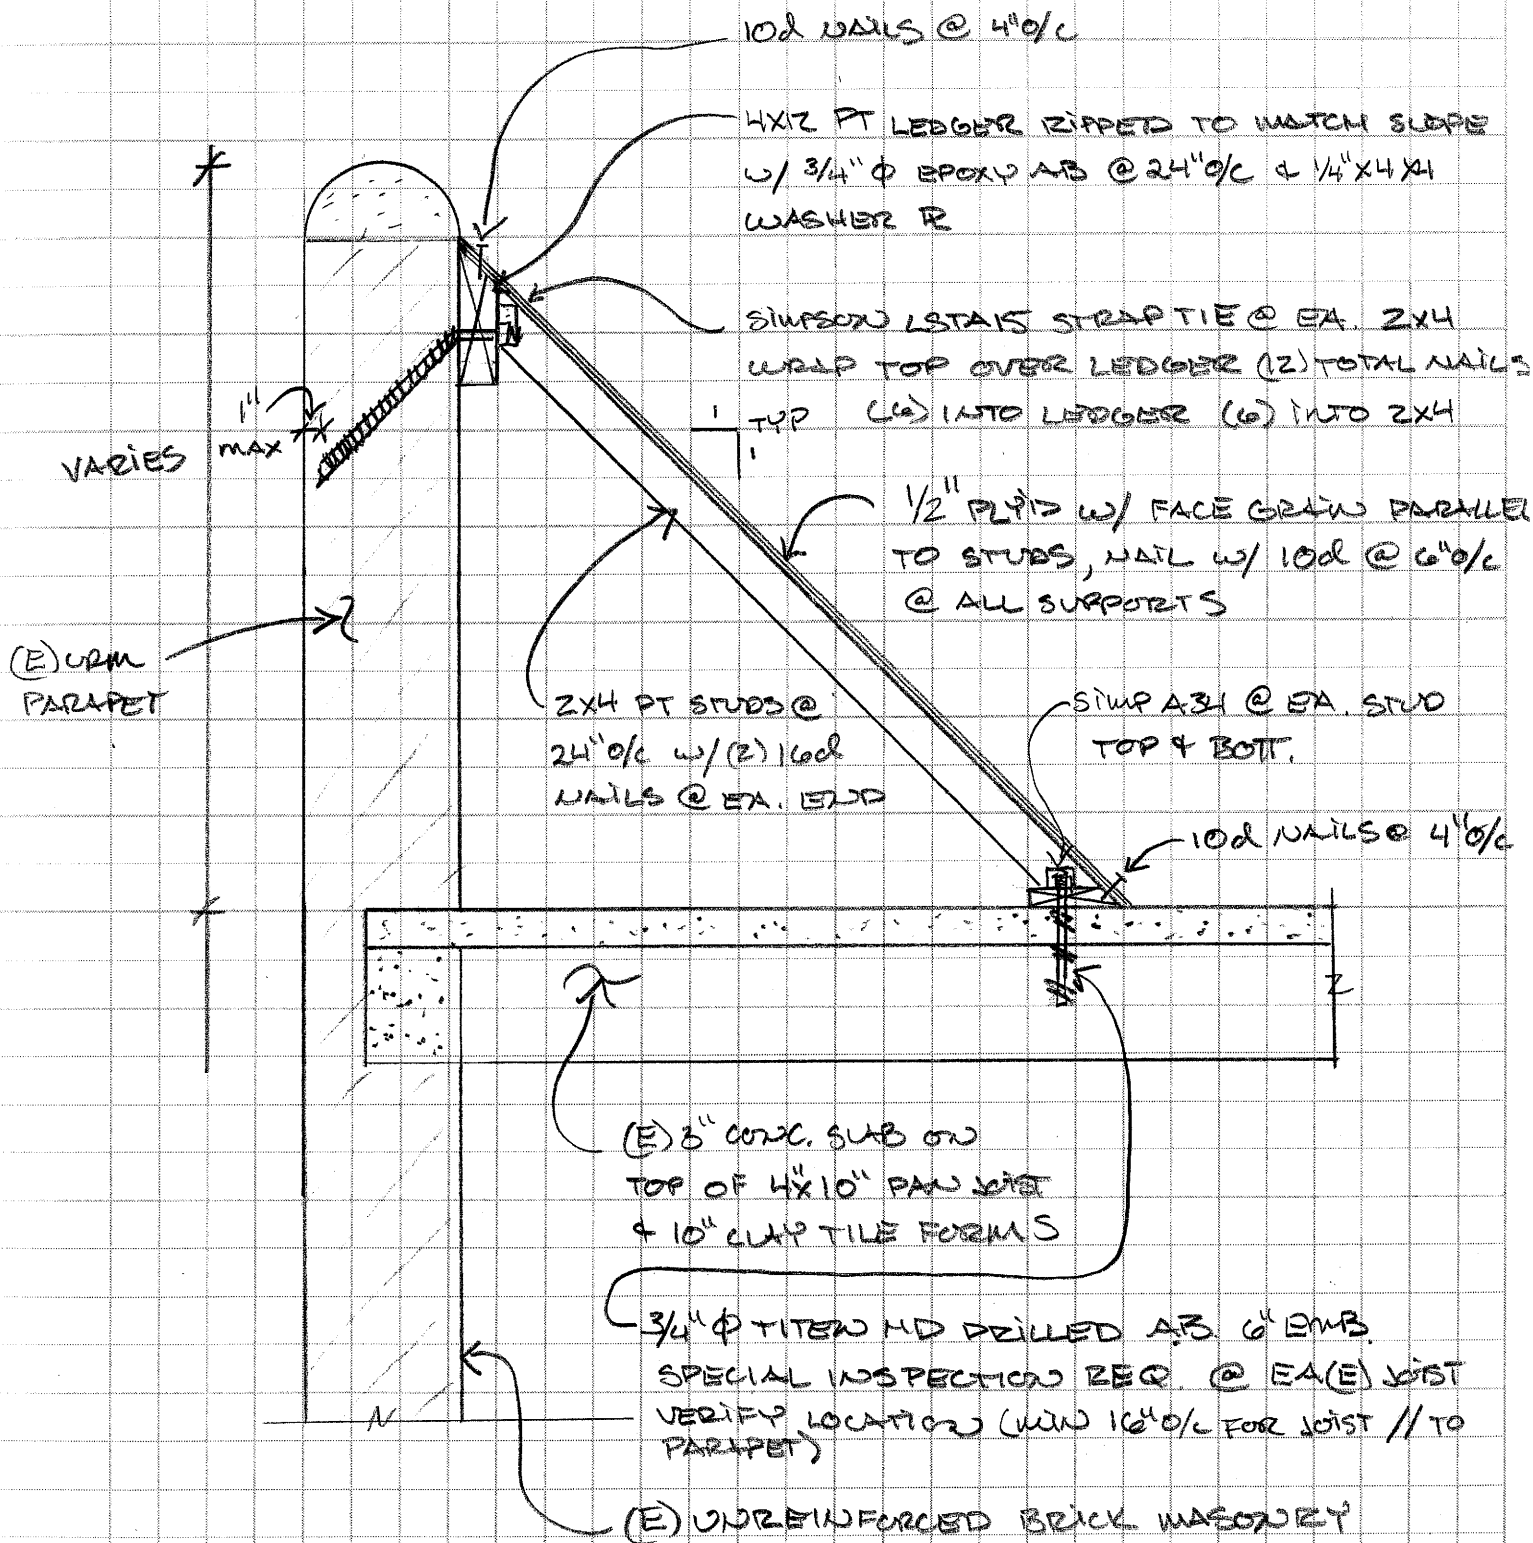 10d NAILS @ 4"O/C
4X12 PT LEDGER RIPPED TO MATCH SLOPE
W/ 3/4" Φ EPOXY AB @ 24"O/C & 1/4"X4X4
WASHER PL
SIMPSON LSTA15 STRAP TIE @ EA. 2X4
WRAP TOP OVER LEDGER (12) TOTAL NAILS
(6) INTO LEDGER (6) INTO 2X4
1
TYP
1
1"
MAX
VARIES
1/2" PLY'D W/ FACE GRAIN PARALLEL
TO STUDS, NAIL W/ 10d @ 6"O/C
@ ALL SUPPORTS
(E) URM
PARAPET
2X4 PT STUDS @
24"O/C W/(2) 16d
NAILS @ EA. END
SIMP A34 @ EA. STUD
TOP & BOTT.
10d NAILS @ 4"O/C
(E) 3" CONC. SLAB ON
TOP OF 4"X10" PAN JOIST
& 10" CLAY TILE FORMS
3/4" Φ TITEN HD DRILLED A.B. 6" EMB.
SPECIAL INSPECTION REQ. @ EA(E) JOIST
VERIFY LOCATION (MIN 16"O/C FOR JOIST // TO
PARAPET)
(E) UNREINFORCED BRICK MASONRY